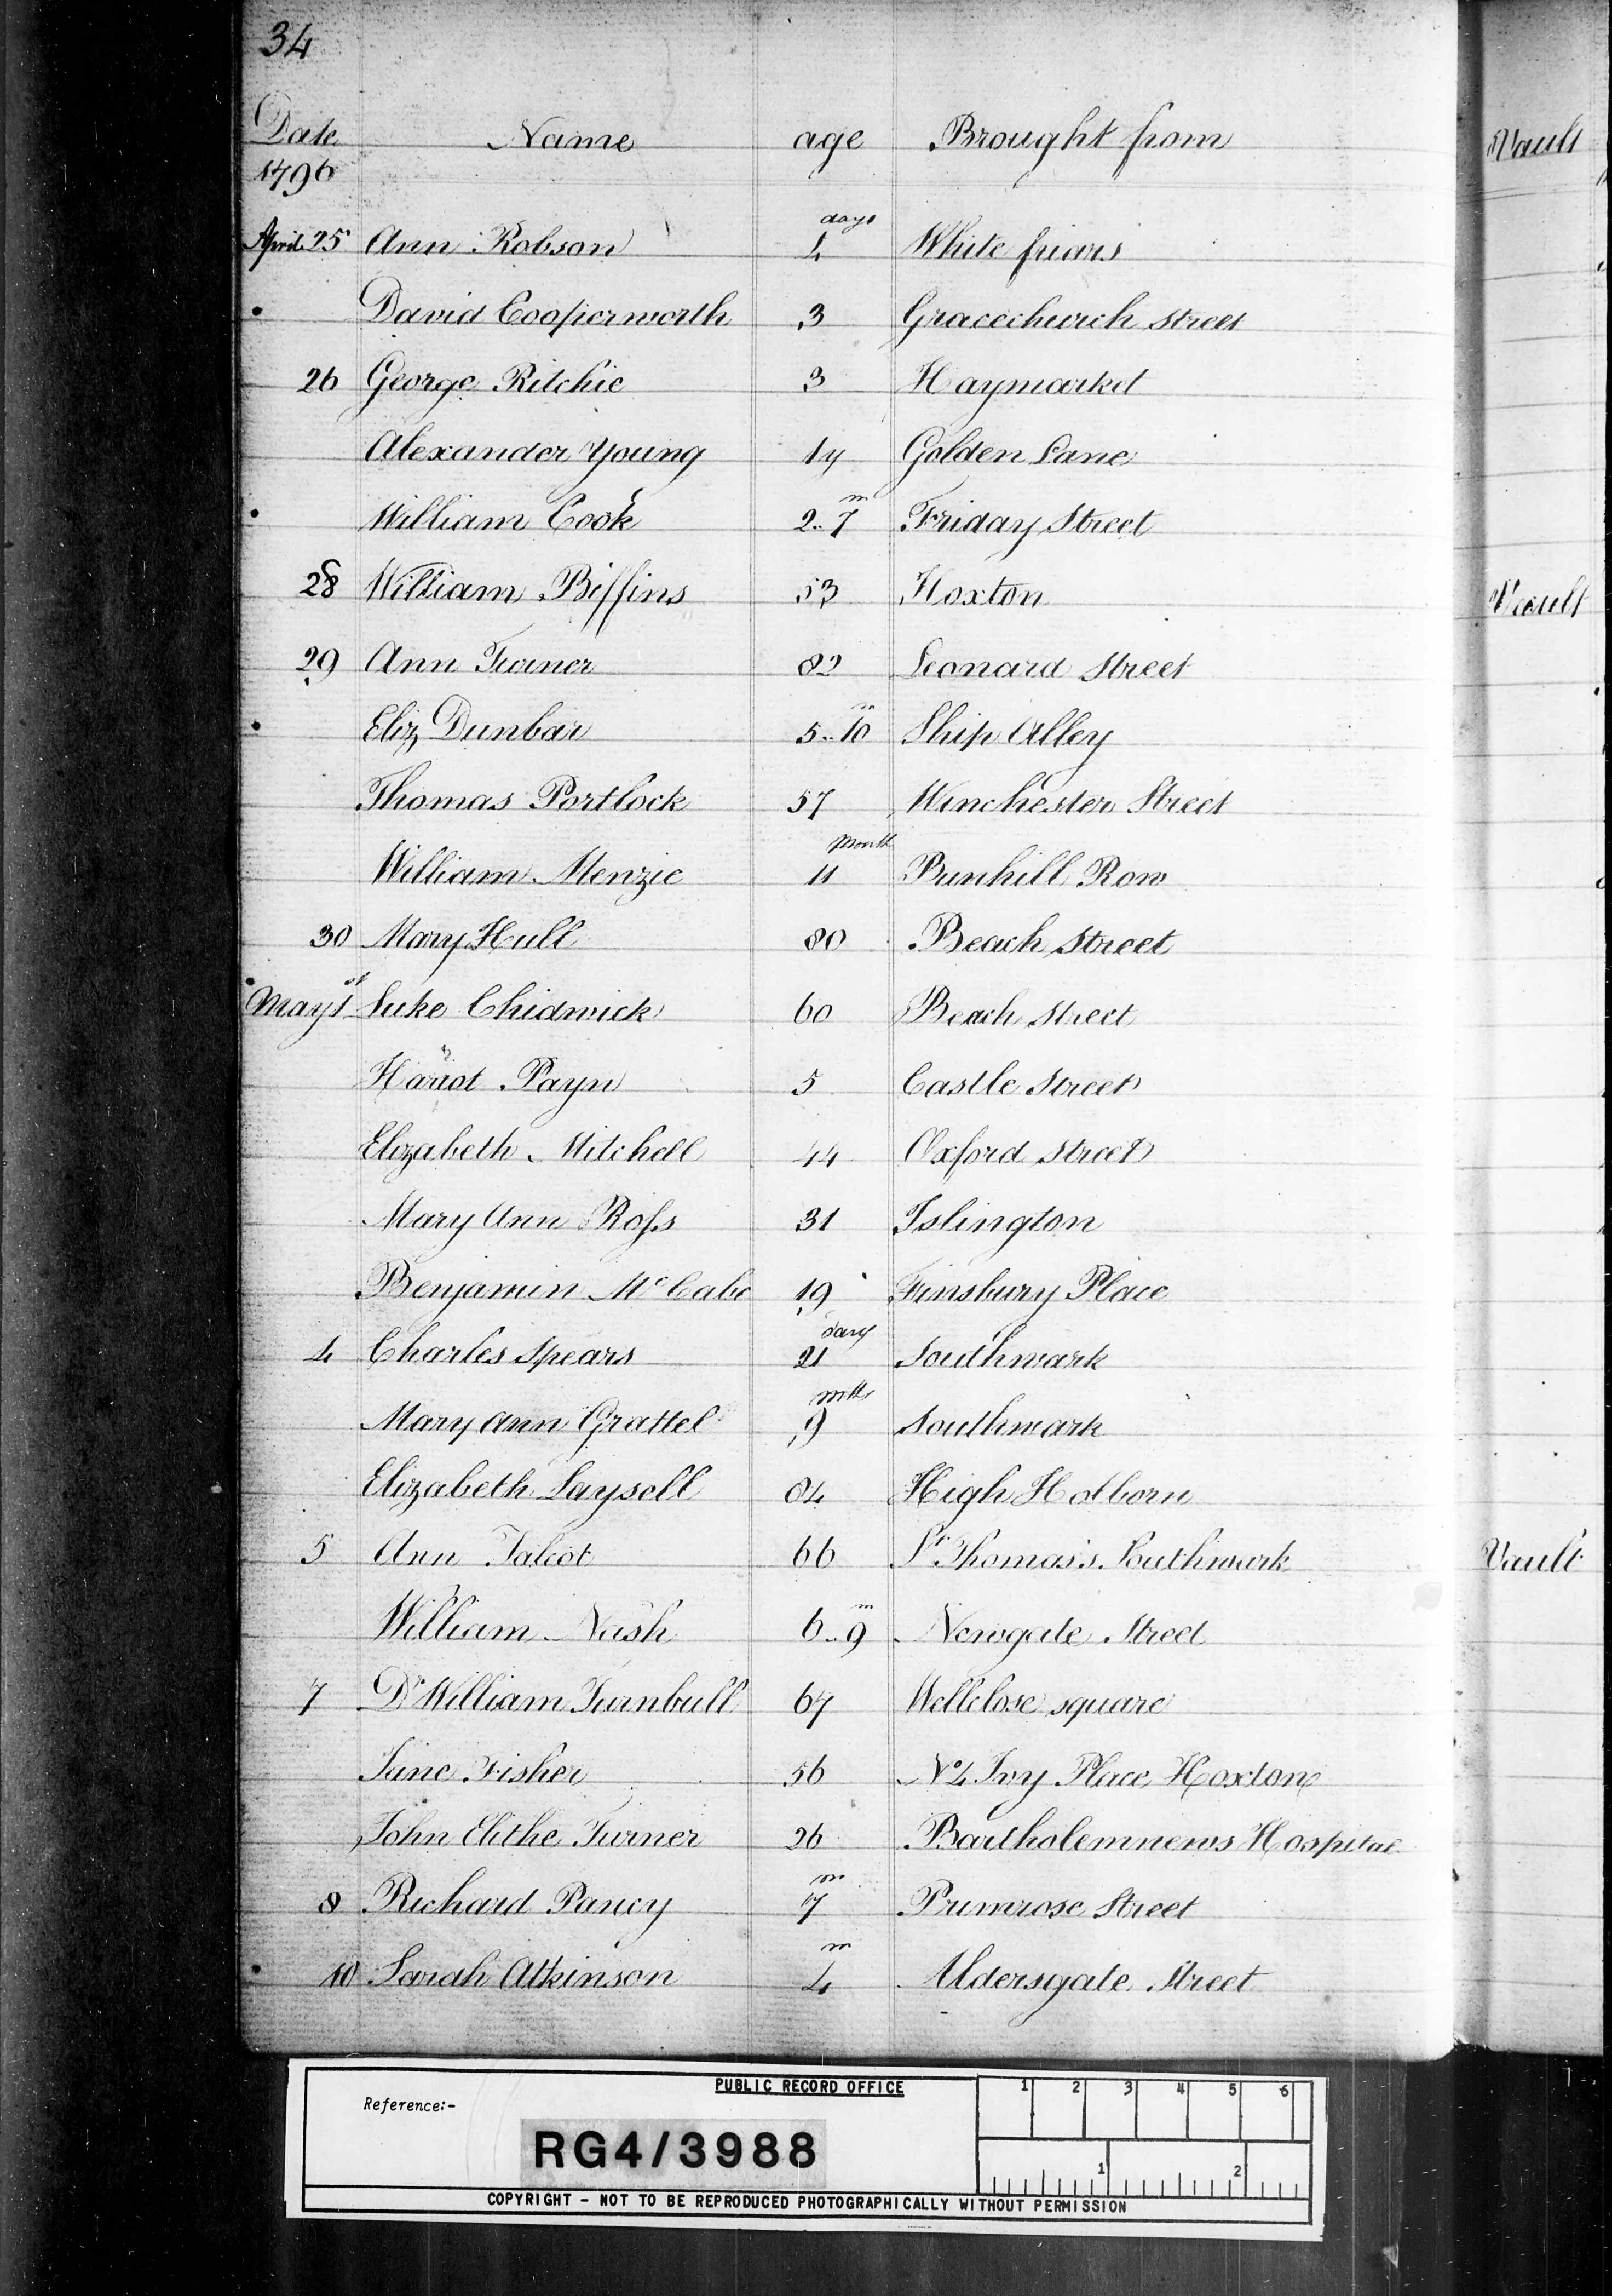 34
Date Name age Brought from Vault
1796
April 25 Ann Robson 4 days White friars
David Cooperworth 3 Gracechurch Street
26 George Ritchie 3 Haymarket
Alexander Young 17 Golden Lane
William Cook 2..7 m Friday Street
28 William Biffins 53 Hoxton Vault
29 Ann Turner 82 Leonard Street
Eliz Dunbar 5..10 m Ship Alley
Thomas Portlock 57 Winchester Street
William Menzie 11 Month Bunhill Row
30 Mary Hull 80 Beach Street
May 1st Luke Chidwick 60 Beach Street
Harriot Payn 5 Castle Street
Elizabeth Mitchell 44 Oxford Street
Mary Ann Ross 31 Islington
Benjamin McCabe 19 Finsbury Place
4 Charles Spears 21 days Southwark
Mary Ann Grattel 9 mths Southwark
Elizabeth Laysell 84 High Holborn
5 Ann Talcot 66 St Thomas's Southwark Vault
William Nash 6..9 m Newgate Street
7 Dr William Turnbull 67 Wellclose square
Jane Fisher 56 No 4 Ivy Place Hoxton
John Elithe Turner 26 Bartholemnews Hospital
8 Richard Pancy 7 m Primrose Street
10 Sarah Atkinson 4 m Aldersgate Street
PUBLIC RECORD OFFICE 1 2 3 4 5 6
Reference:-
RG4/3988 1 2
COPYRIGHT - NOT TO BE REPRODUCED PHOTOGRAPHICALLY WITHOUT PERMISSION